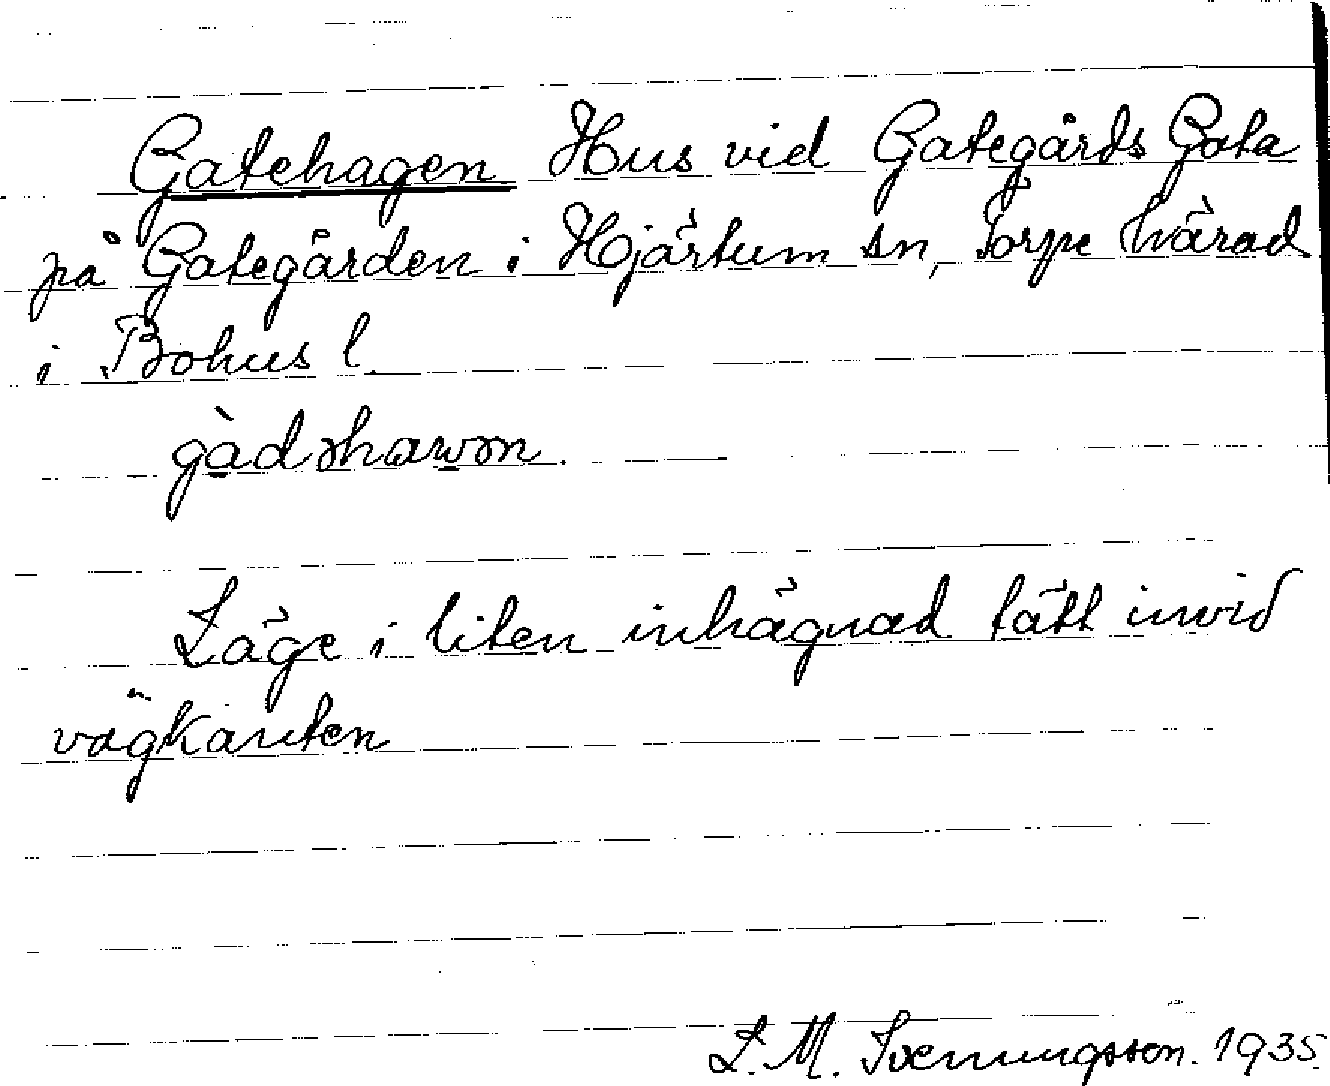 Gatehagen Hus vid Gategårds Gata
på Gategården i Hjärtum sn, Torpe härad
i Bohus l.
gàdəhawən.
Läge i liten inhägnad tätt invid
vägkanten
L. M. Svenungsson. 1935.